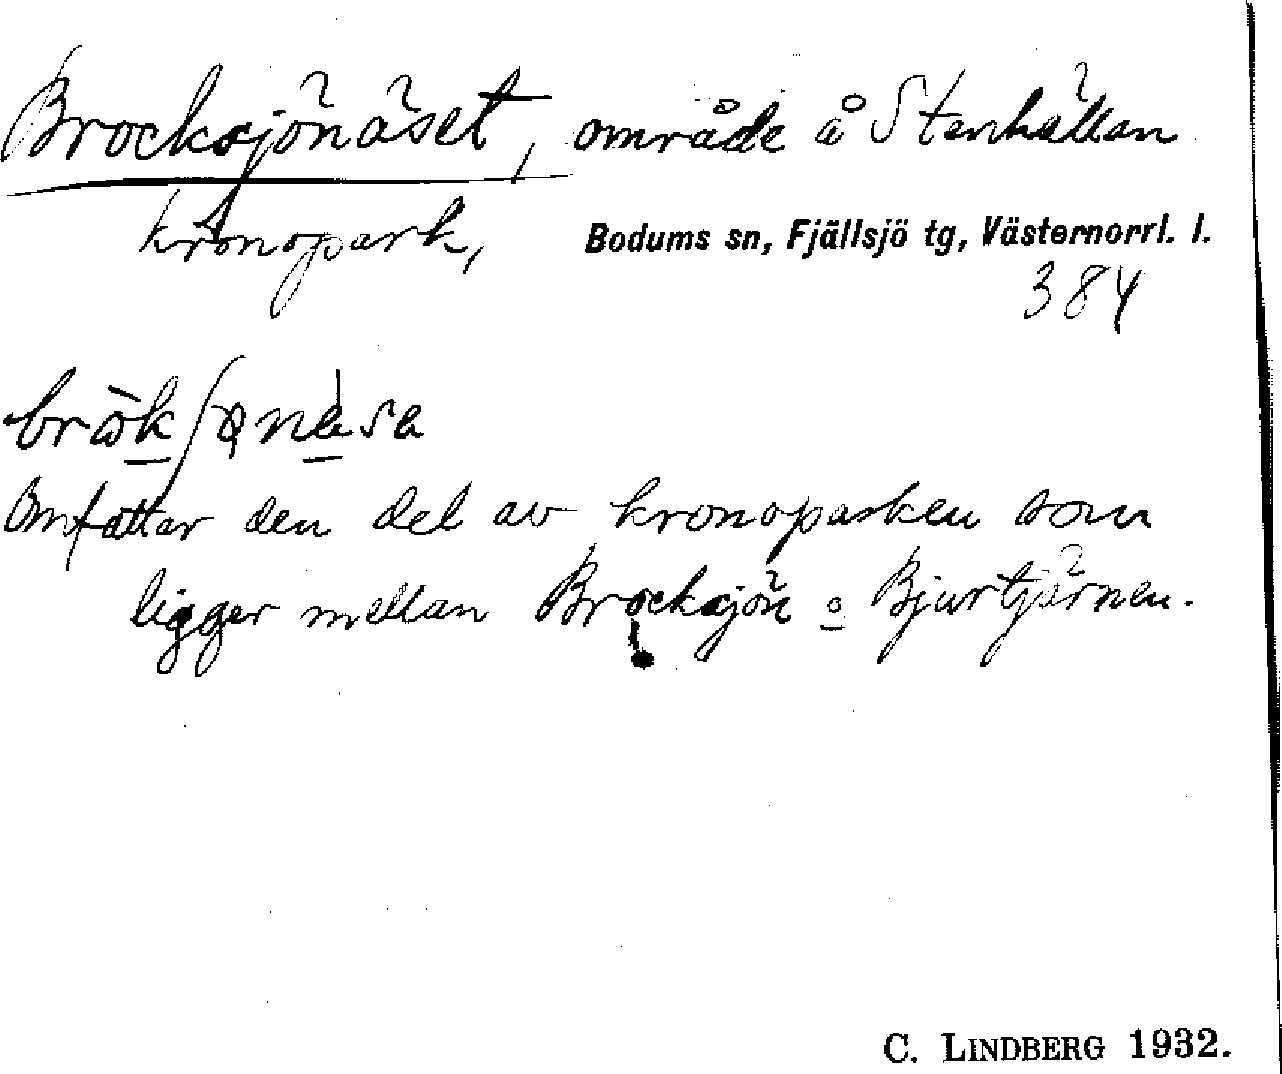 Brocksjönäset, område å Stenhällan
kronopark, Bodums sn, Fjällsjö tg, Västernorrl. l.
384
Omfattar den del av kronoparken som
ligger mellan Brocksjön o Bjurtjärnen.
C. LINDBERG 1932.